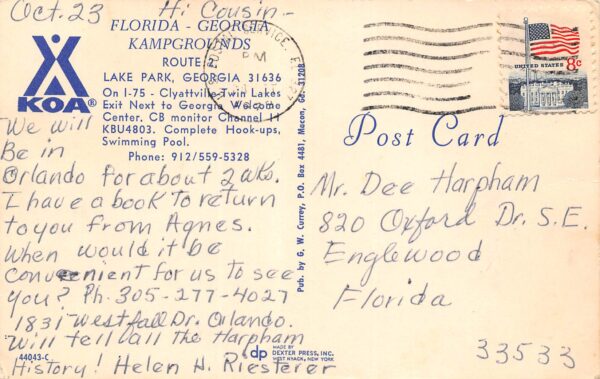 Oct. 23 Hi Cousin -
FLORIDA - GEORGIA
KAMPGROUNDS
LAKE PARK, GEORGIA 31636
On I-75 - Clyattville-Twin Lakes
Exit Next to Georgia Welcome
Center. CB monitor Channel 11
KBU4803. Complete Hook-ups,
Swimming Pool.
Phone: 912/559-5328
KOA®
We will
Be in
Orlando for about 2 wks.
I have a book to return
to you from Agnes.
When would it be
convenient for us to see
you? Ph. 305-277-4027
1831 Westfall Dr. Orlando.
Will tell all the Harpham
History! Helen H. Riesterer
44043-C
Pub. by G. W. Currey, P.O. Box 4481, Macon, Ga. 31208
dp MADE BY
DEXTER PRESS, INC.
WEST NYACK, NEW YORK
PM
UNITED STATES 8c
Post Card
Mr. Dee Harpham
820 Oxford Dr. S.E.
Englewood
Florida
33533